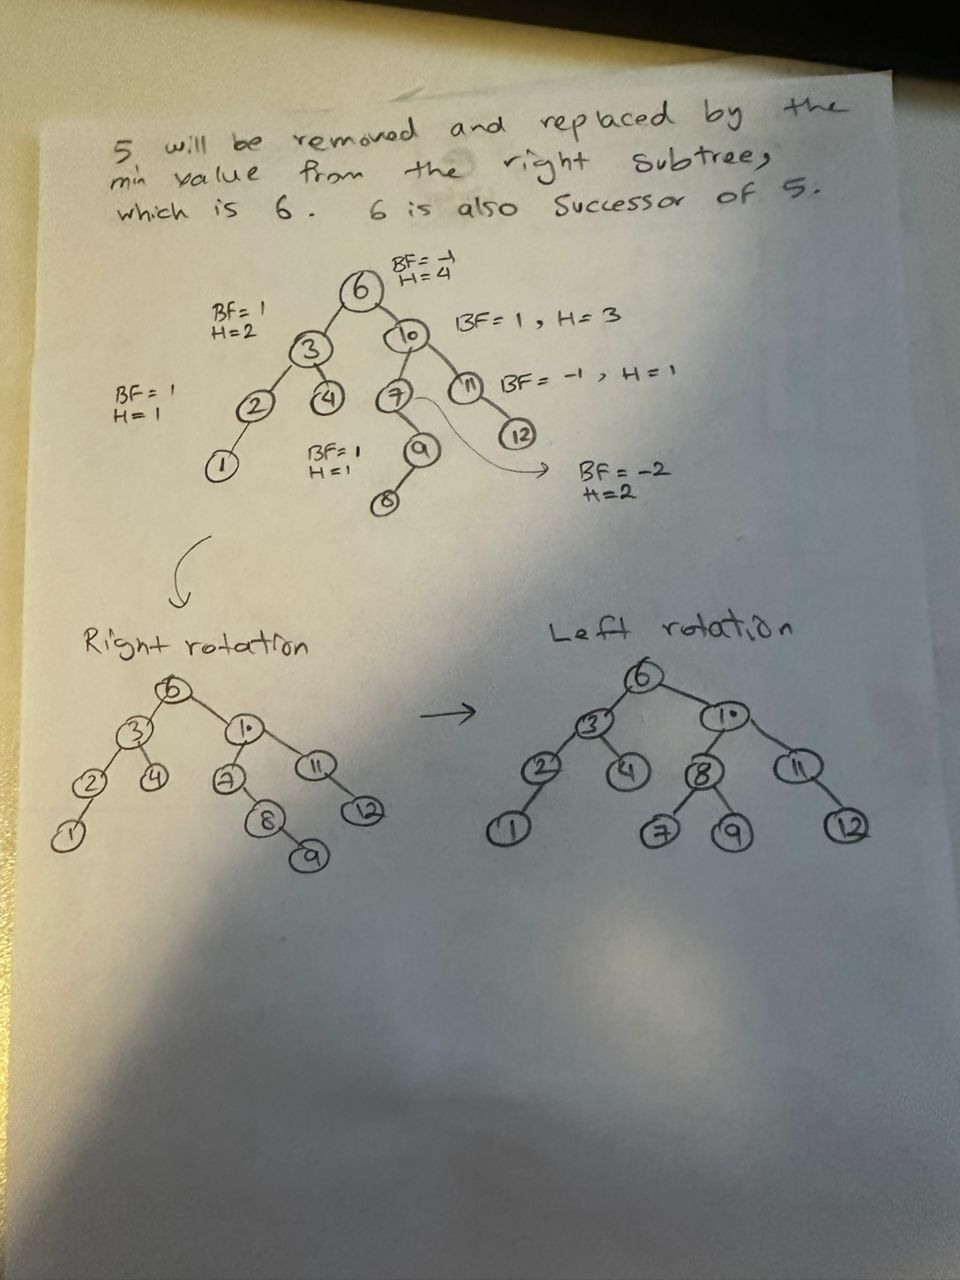 5 will be removed and replaced by the
min value from the right subtree,
which is 6. 6 is also Successor of 5.
BF = -1
H = 4
6
BF = 1
H = 2
BF = 1, H = 3
3
10
BF = 1
H = 1
2
4
7
11
BF = -1, H = 1
1
BF = 1
H = 1
9
12
8
BF = -2
H = 2
Right rotation
6
3
10
2
4
7
11
1
8
12
9
Left rotation
6
3
10
2
4
8
11
1
7
9
12